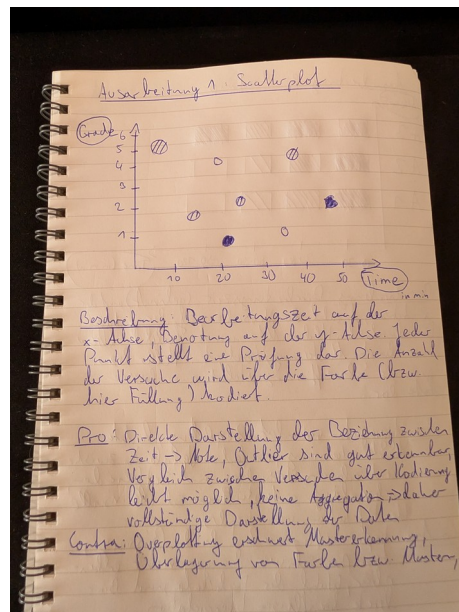 Ausarbeitung 1. Scatterplot
Grade
6
5
4
3
2
1
10 20 30 40 50 Time
in min
Beschreibung: Bearbeitungszeit auf der
x-Achse, Benotung auf der y-Achse. Jeder
Punkt stellt eine Prüfung dar. Die Anzahl
der Versuche wird über die Farbe (bzw.
hier Füllung) kodiert.
Pro: Direkte Darstellung der Beziehung zwischen
Zeit → Note, Outlier sind gut erkennbar,
Vergleich zwischen Versuchen über Kodierung
leicht möglich, keine Aggregation → daher
vollständige Darstellung der Daten
Contra: Overplotting erschwert Mustererkennung,
Überlagerung von Farben bzw. Mustern,